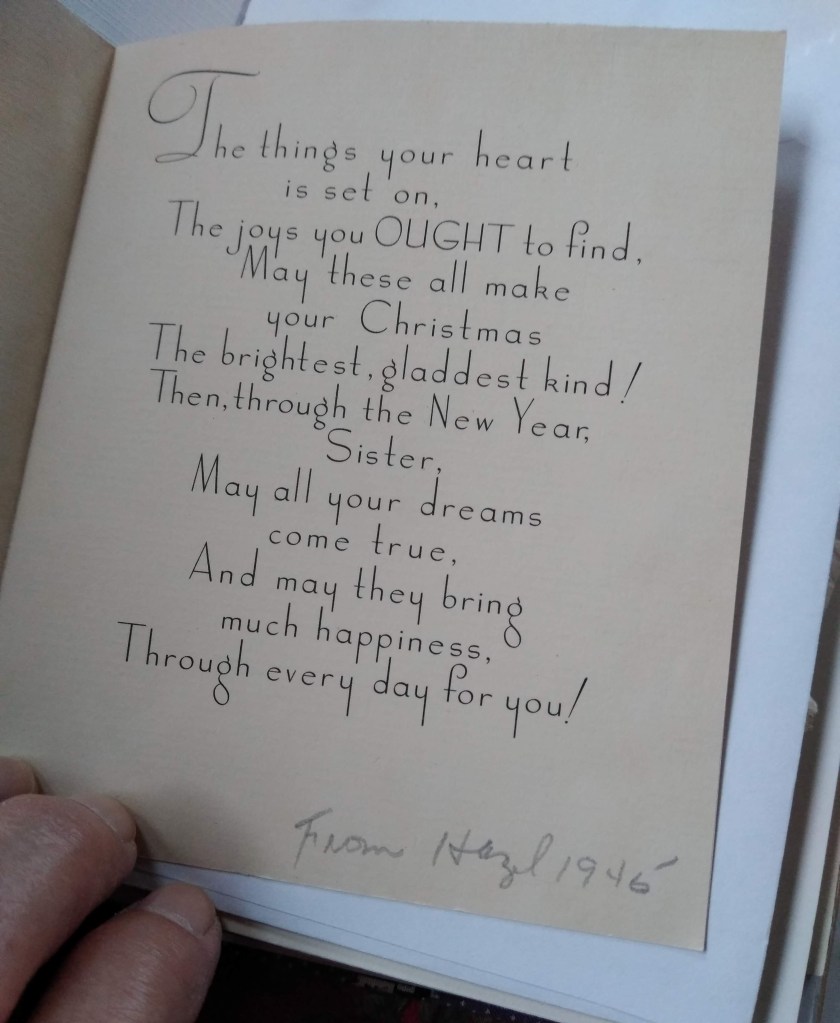 The things your heart
is set on,
The joys you OUGHT to find,
May these all make
your Christmas
The brightest, gladdest kind!
Then, through the New Year,
Sister,
May all your dreams
come true,
And may they bring
much happiness,
Through every day for you!
From Hazel 1945